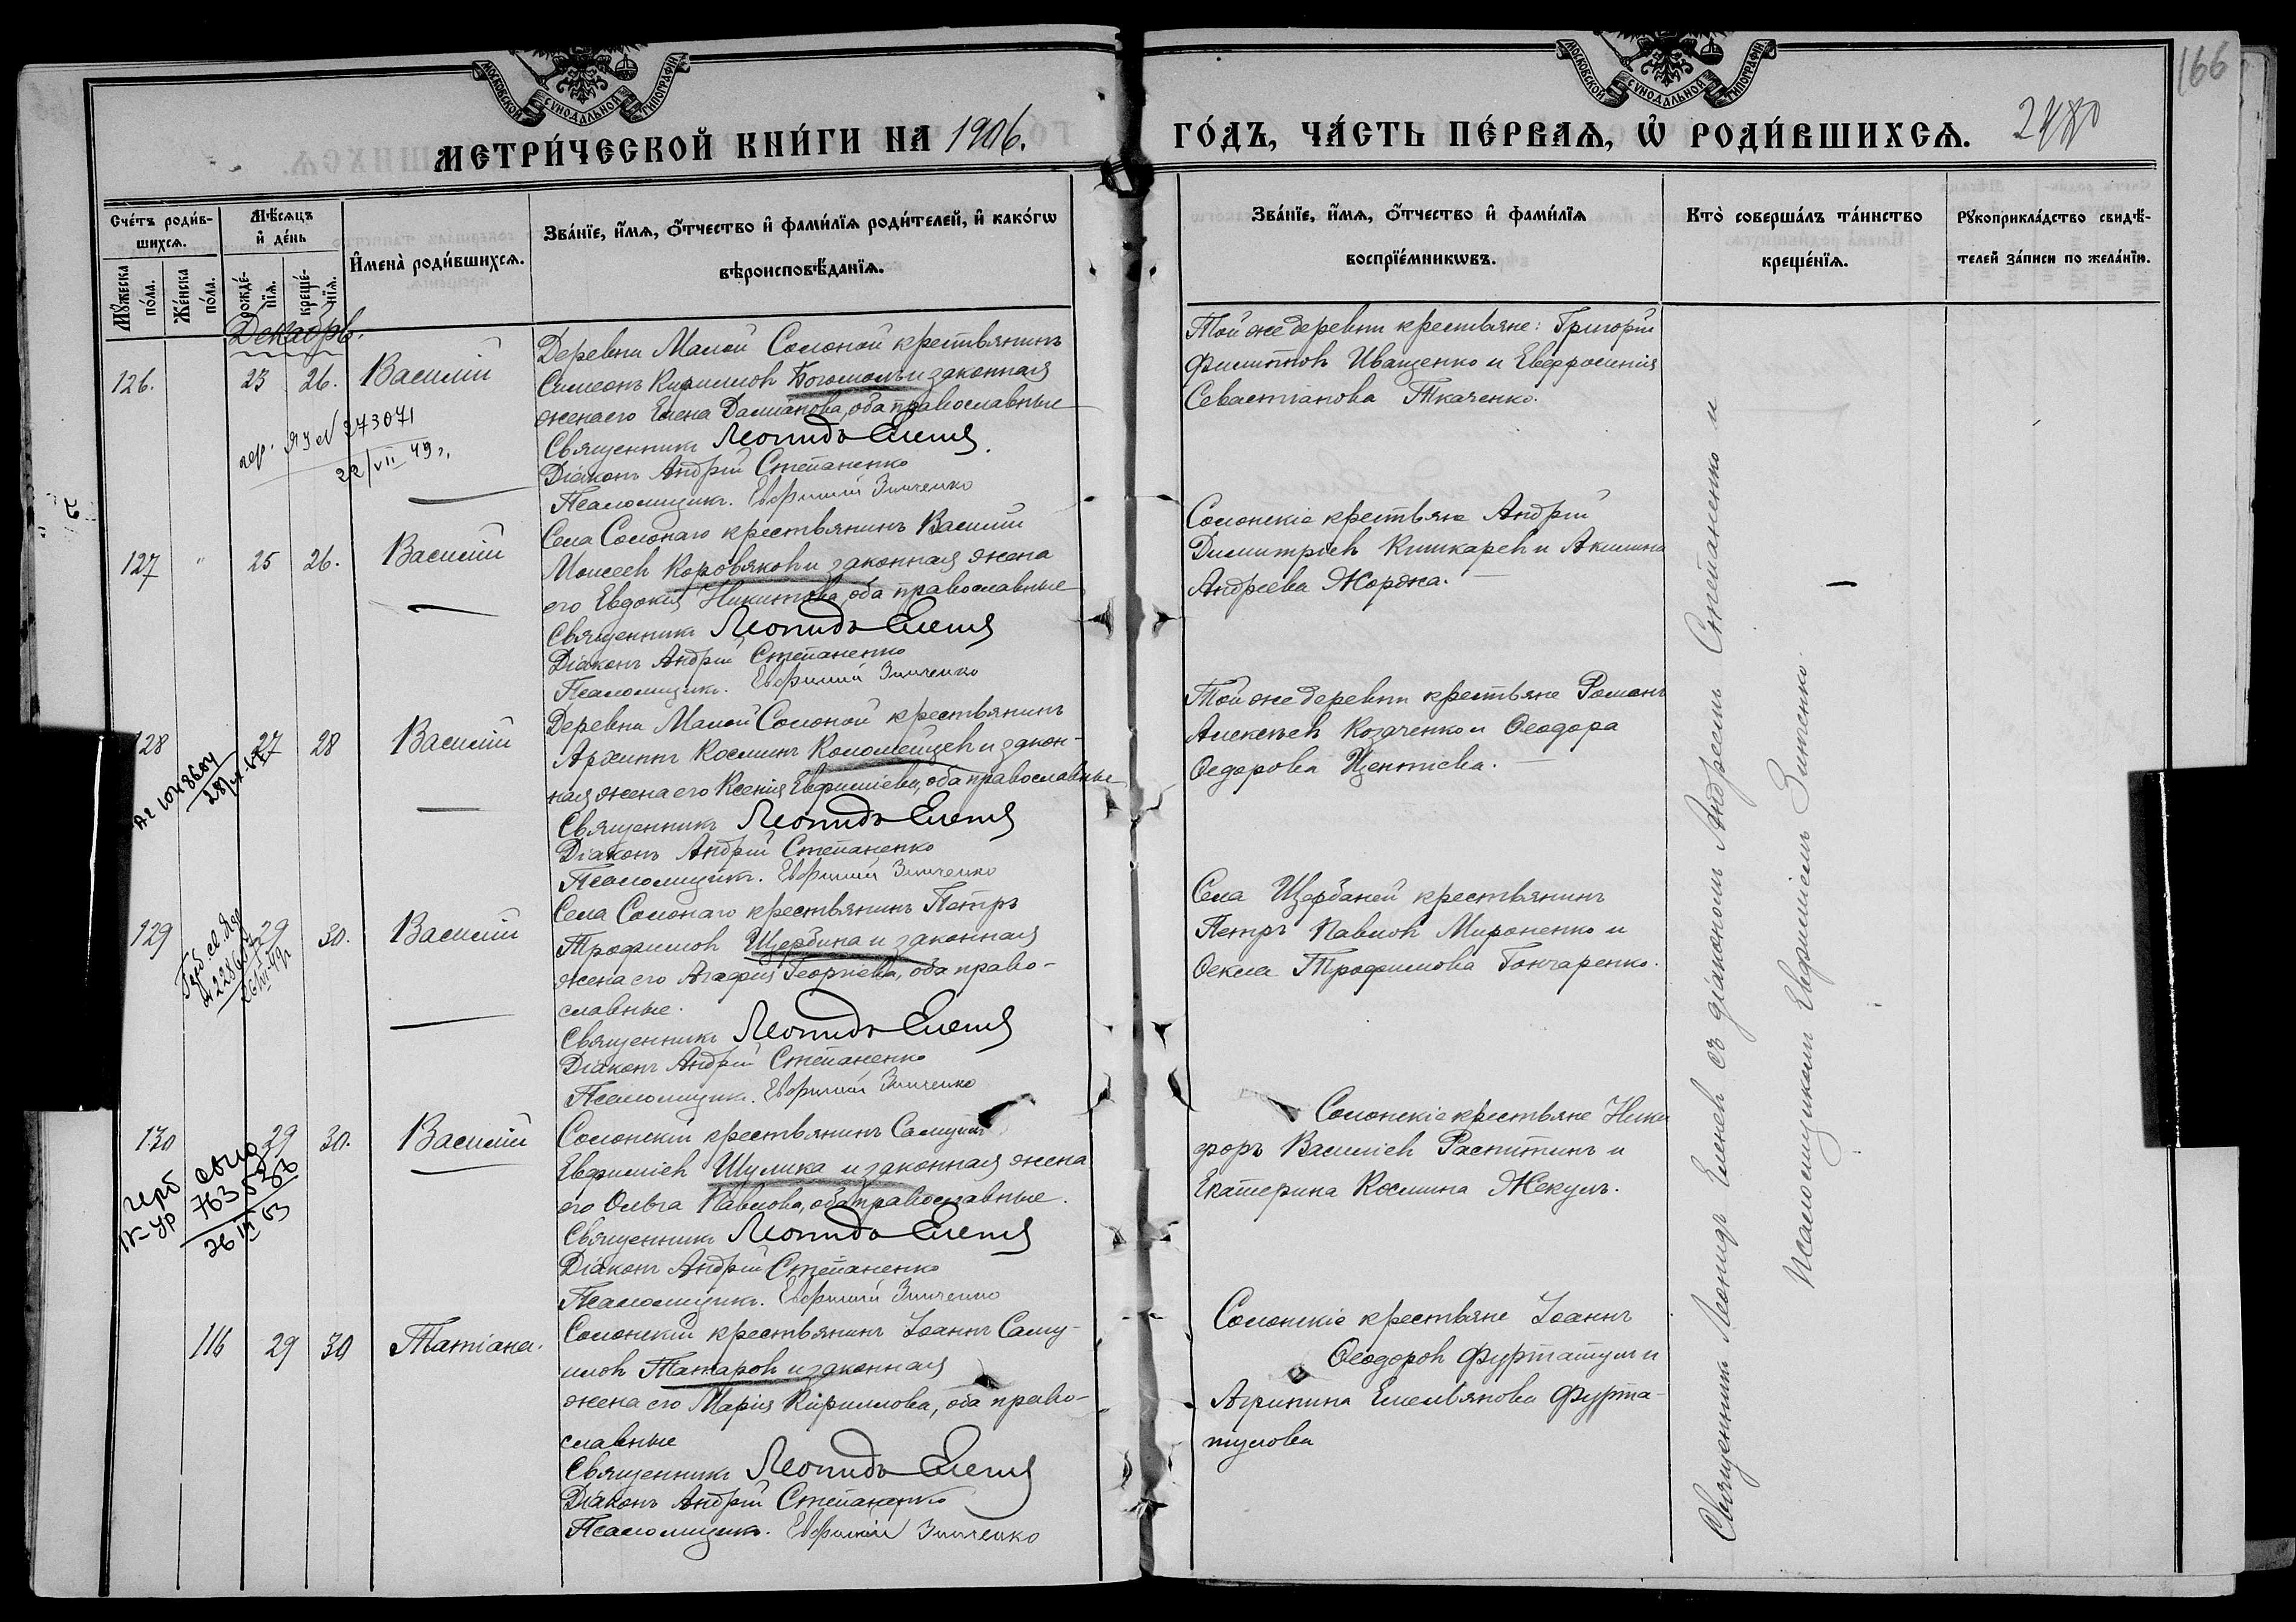 166
2480
МОСКОВСКОЙ СѴНОДАЛЬНОЙ ТИПОГРАФІИ
МОСКОВСКОЙ СѴНОДАЛЬНОЙ ТИПОГРАФІИ
МЕТРИ́ЧЕСКОЙ КНИ́ГИ НА 1906. ГО́ДЪ, ЧА́СТЬ ПЕ́РВАѦ, Ѽ РОДИ́ВШИХСѦ.
Сче́тъ роди́вшихсѧ.
Мꙋ́жеска по́ла.
Же́нска по́ла.
Мѣ́сѧцъ и҆ де́нь
рожде́нїѧ.
креще́нїѧ.
И҆мена̀ роди́вшихсѧ.
Зва́нїе, и҆́мѧ, ѻ҆́тчество и҆ фами́лїѧ роди́телей, и҆ како́гѡ
вѣроисповѣ́данїѧ.
Зва́нїе, и҆́мѧ, ѻ҆́тчество и҆ фами́лїѧ
воспрїе́мникѡвъ.
Кто̀ соверша́лъ та́инство
креще́нїѧ.
Рꙋкоприкла́дство свидѣ́-
телей за́писи по жела́нїю.
Декабрь.
126. 23 26. Василій
Деревни Малой Солоной крестьянинъ
Симеонъ Кирилловъ Богомолъ и законная
жена его Елена Даміанова, оба православные
Священникъ Леонидъ Еленевъ
Діаконъ Андрій Степаненко
Псаломщикъ. Евфимій Зинченко
Той же деревни крестьяне: Григорій
Филипповъ Иващенко и Евфросинія
Севастіанова Ткаченко.
ЯЗ № 273071
22/VII 49 г.
127 " 25 26. Василій
Села Солонаго крестьянинъ Василій
Моисеевъ Коровяковъ и законная жена
его Евдокія Никитова, оба православные
Священникъ Леонидъ Еленевъ
Діаконъ Андрій Степаненко
Псаломщикъ. Евфимій Зинченко
Солонскіе крестьяне Андрій
Димитріевъ Кишкаревъ и Акилина
Андреева Жоржа.
128 27 28 Василій
Деревни Малой Солоной крестьянинъ
Архиппъ Косминъ Коломейцевъ и закон-
ная жена его Ксенія Евфиміева, оба православные
Священникъ Леонидъ Еленевъ
Діаконъ Андрій Степаненко
Псаломщикъ. Евфимій Зинченко
Той же деревни крестьяне Романъ
Алексѣевъ Козаченко и Ѳеодора
Ѳедорова
129 29 30. Василій
Села Солонаго крестьянинъ Петръ
Трофимовъ Щербина и законная
жена его Агафія Георгіева, оба право-
славные.
Священникъ Леонидъ Еленевъ
Діаконъ Андрій Степаненко
Псаломщикъ. Евфимій Зинченко
Села Щербаней крестьянинъ
Петръ Павловъ Мироненко и
Ѳекла Трофимова Гончаренко.
130 29 30. Василій
Солонскій крестьянинъ Самуилъ
Евфиміевъ Шулика и законная жена
его Ольга Павлова, оба православные.
Священникъ Леонидъ Еленевъ
Діаконъ Андрій Степаненко
Псаломщикъ. Евфимій Зинченко
Солонскіе крестьяне Ники
форъ Василіевъ Распитинъ и
Екатерина Космина Жекулъ.
герб
116 29 30 Татіана.
Солонскій крестьянинъ Іоаннъ Саму-
иловъ Татаровъ и законная
жена его Марія Кириллова, оба право-
славные
Священникъ Леонидъ Еленевъ
Діаконъ Андрій Степаненко
Псаломщикъ. Евфимій Зинченко
Солонскіе крестьяне Іоаннъ
Ѳеодоровъ Фуртатулъ и
Агрипина Емельянова Фурта-
тулова
Священникъ Леонидъ Еленевъ съ діакономъ Андреемъ Степаненко и
псаломщикомъ Евфиміемъ Зинченко.